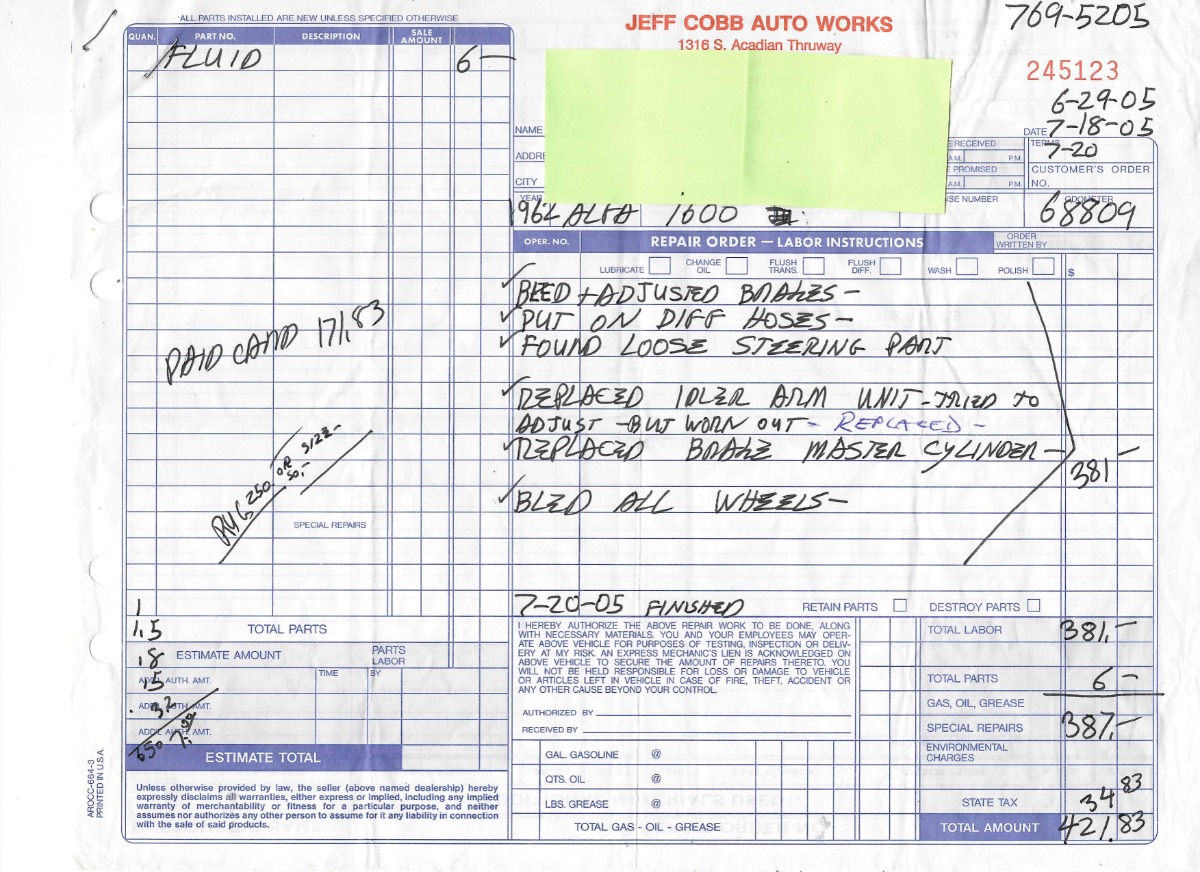 ALL PARTS INSTALLED ARE NEW UNLESS SPECIFIED OTHERWISE
JEFF COBB AUTO WORKS
1316 S. Acadian Thruway
769-5205
245123
6-29-05
DATE 7-18-05
TERMS 7-20
QUAN. PART NO. DESCRIPTION SALE AMOUNT
FLUID 6 —
NAME
ADDRE
CITY
RECEIVED
A.M. P.M.
PROMISED
A.M. P.M.
CUSTOMER'S ORDER NO.
YEAR
NSE NUMBER
ODOMETER
1962 ALFA 1600
68809
OPER. NO. REPAIR ORDER — LABOR INSTRUCTIONS
ORDER WRITTEN BY
LUBRICATE CHANGE OIL FLUSH TRANS. FLUSH DIFF. WASH POLISH $
BLEED + ADJUSTED BRAKES —
PUT ON DIFF HOSES —
FOUND LOOSE STEERING PART
REPLACED IDLER ARM UNIT - TRIED TO
ADJUST - BUT WORN OUT - REPLACED -
REPLACED BRAKE MASTER CYLINDER —
381 —
BLED ALL WHEELS —
PAID CARD 171.83
250 OR SIZE -
50,-
SPECIAL REPAIRS
7-20-05 FINISHED
RETAIN PARTS DESTROY PARTS
1
1.5
.8
15
. 32
TOTAL PARTS
ESTIMATE AMOUNT PARTS LABOR
ADD'L AUTH. AMT. TIME BY
ADD'L AUTH. AMT.
ADD'L AUTH. AMT.
ESTIMATE TOTAL
I HEREBY AUTHORIZE THE ABOVE REPAIR WORK TO BE DONE, ALONG
WITH NECESSARY MATERIALS. YOU AND YOUR EMPLOYEES MAY OPER-
ATE ABOVE VEHICLE FOR PURPOSES OF TESTING, INSPECTION OR DELIV-
ERY AT MY RISK. AN EXPRESS MECHANIC'S LIEN IS ACKNOWLEDGED ON
ABOVE VEHICLE TO SECURE THE AMOUNT OF REPAIRS THERETO. YOU
WILL NOT BE HELD RESPONSIBLE FOR LOSS OR DAMAGE TO VEHICLE
OR ARTICLES LEFT IN VEHICLE IN CASE OF FIRE, THEFT, ACCIDENT OR
ANY OTHER CAUSE BEYOND YOUR CONTROL.
AUTHORIZED BY
RECEIVED BY
GAL. GASOLINE @
QTS. OIL @
LBS. GREASE @
TOTAL GAS - OIL - GREASE
TOTAL LABOR 381.-
TOTAL PARTS 6 -
GAS, OIL, GREASE
SPECIAL REPAIRS 387.-
ENVIRONMENTAL CHARGES
STATE TAX 34 83
TOTAL AMOUNT 421.83
Unless otherwise provided by law, the seller (above named dealership) hereby
expressly disclaims all warranties, either express or implied, including any implied
warranty of merchantability or fitness for a particular purpose, and neither
assumes nor authorizes any other person to assume for it any liability in connection
with the sale of said products.
APOCC-664-3
PRINTED IN U.S.A.